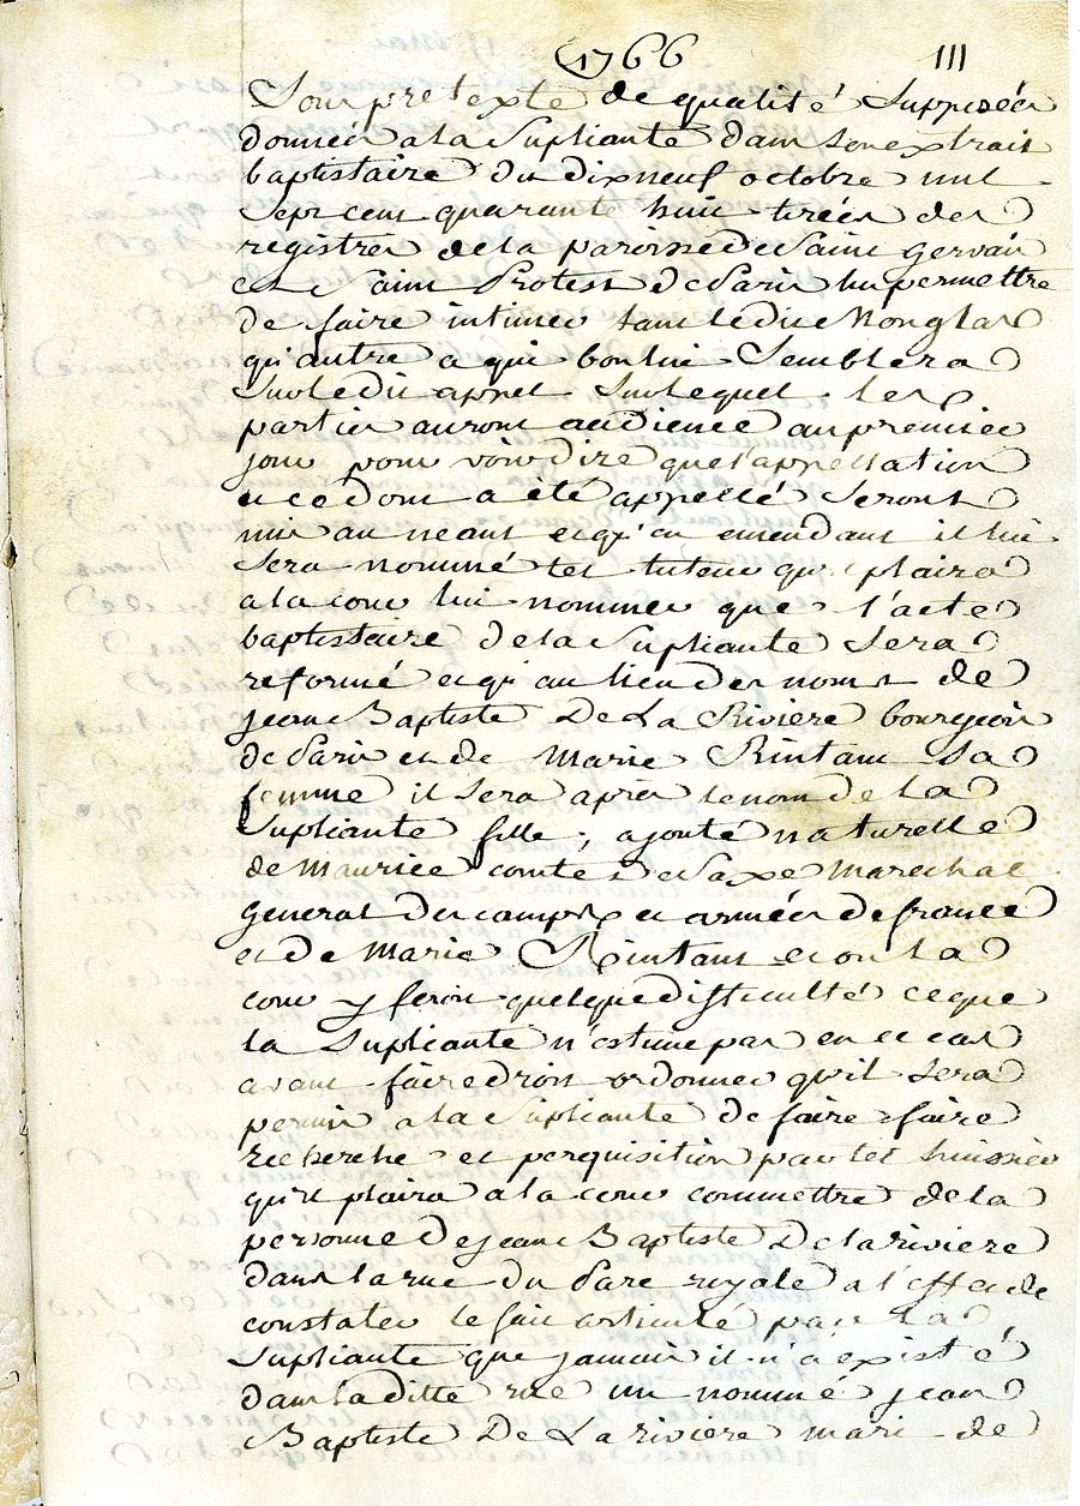 1766 III
Sous pretexte de qualité Supposées
données a la Supliante dans son extrait
baptistaire du dix neuf octobre mil
Sept cent quarante huit tirées des
registres de la paroisse de Saint Gervais
et Saint Protest de Paris lui permettre
de faire intimer tant ledit Monglas
qu'autre a qui bon lui Semblera
Sur ledit appel Sur lequel les
parties auront audience au premier
jour pour voir dire que l'appellation
et ce dont a été appellé Seront
mis au neant et qu'en emendant il lui
Sera nommé tel tuteur qu'il plaira
a la cour lui nommer que l'acte
baptistaire de la Supliante Sera
reformé et qu'au lieu des noms de
jean Baptiste De La Riviere bourgeois
de Paris et de Marie Rintau Sa
femme il Sera après le nom de la
Supliante fille, ajouté naturelle
de Maurice comte de Saxe Marechal
General des camps et armées de france
et de Marie Rintaut et ou la
cour y feroit quelque difficulté ce que
la Supliante n'estime pas en ce cas
avant faire droit ordonner qu'il Sera
permis a la Supliante de faire faire
recherche et perquisition par tel huissier
qu'il plaira a la cour commettre de la
personne de jean Baptiste De la riviere
dans la rue du Parc royale a l'effet de
constater le fait articulé par la
Supliante que jamais il n'a existé
dans la ditte rue un nommé jean
Baptiste De La riviere mari de